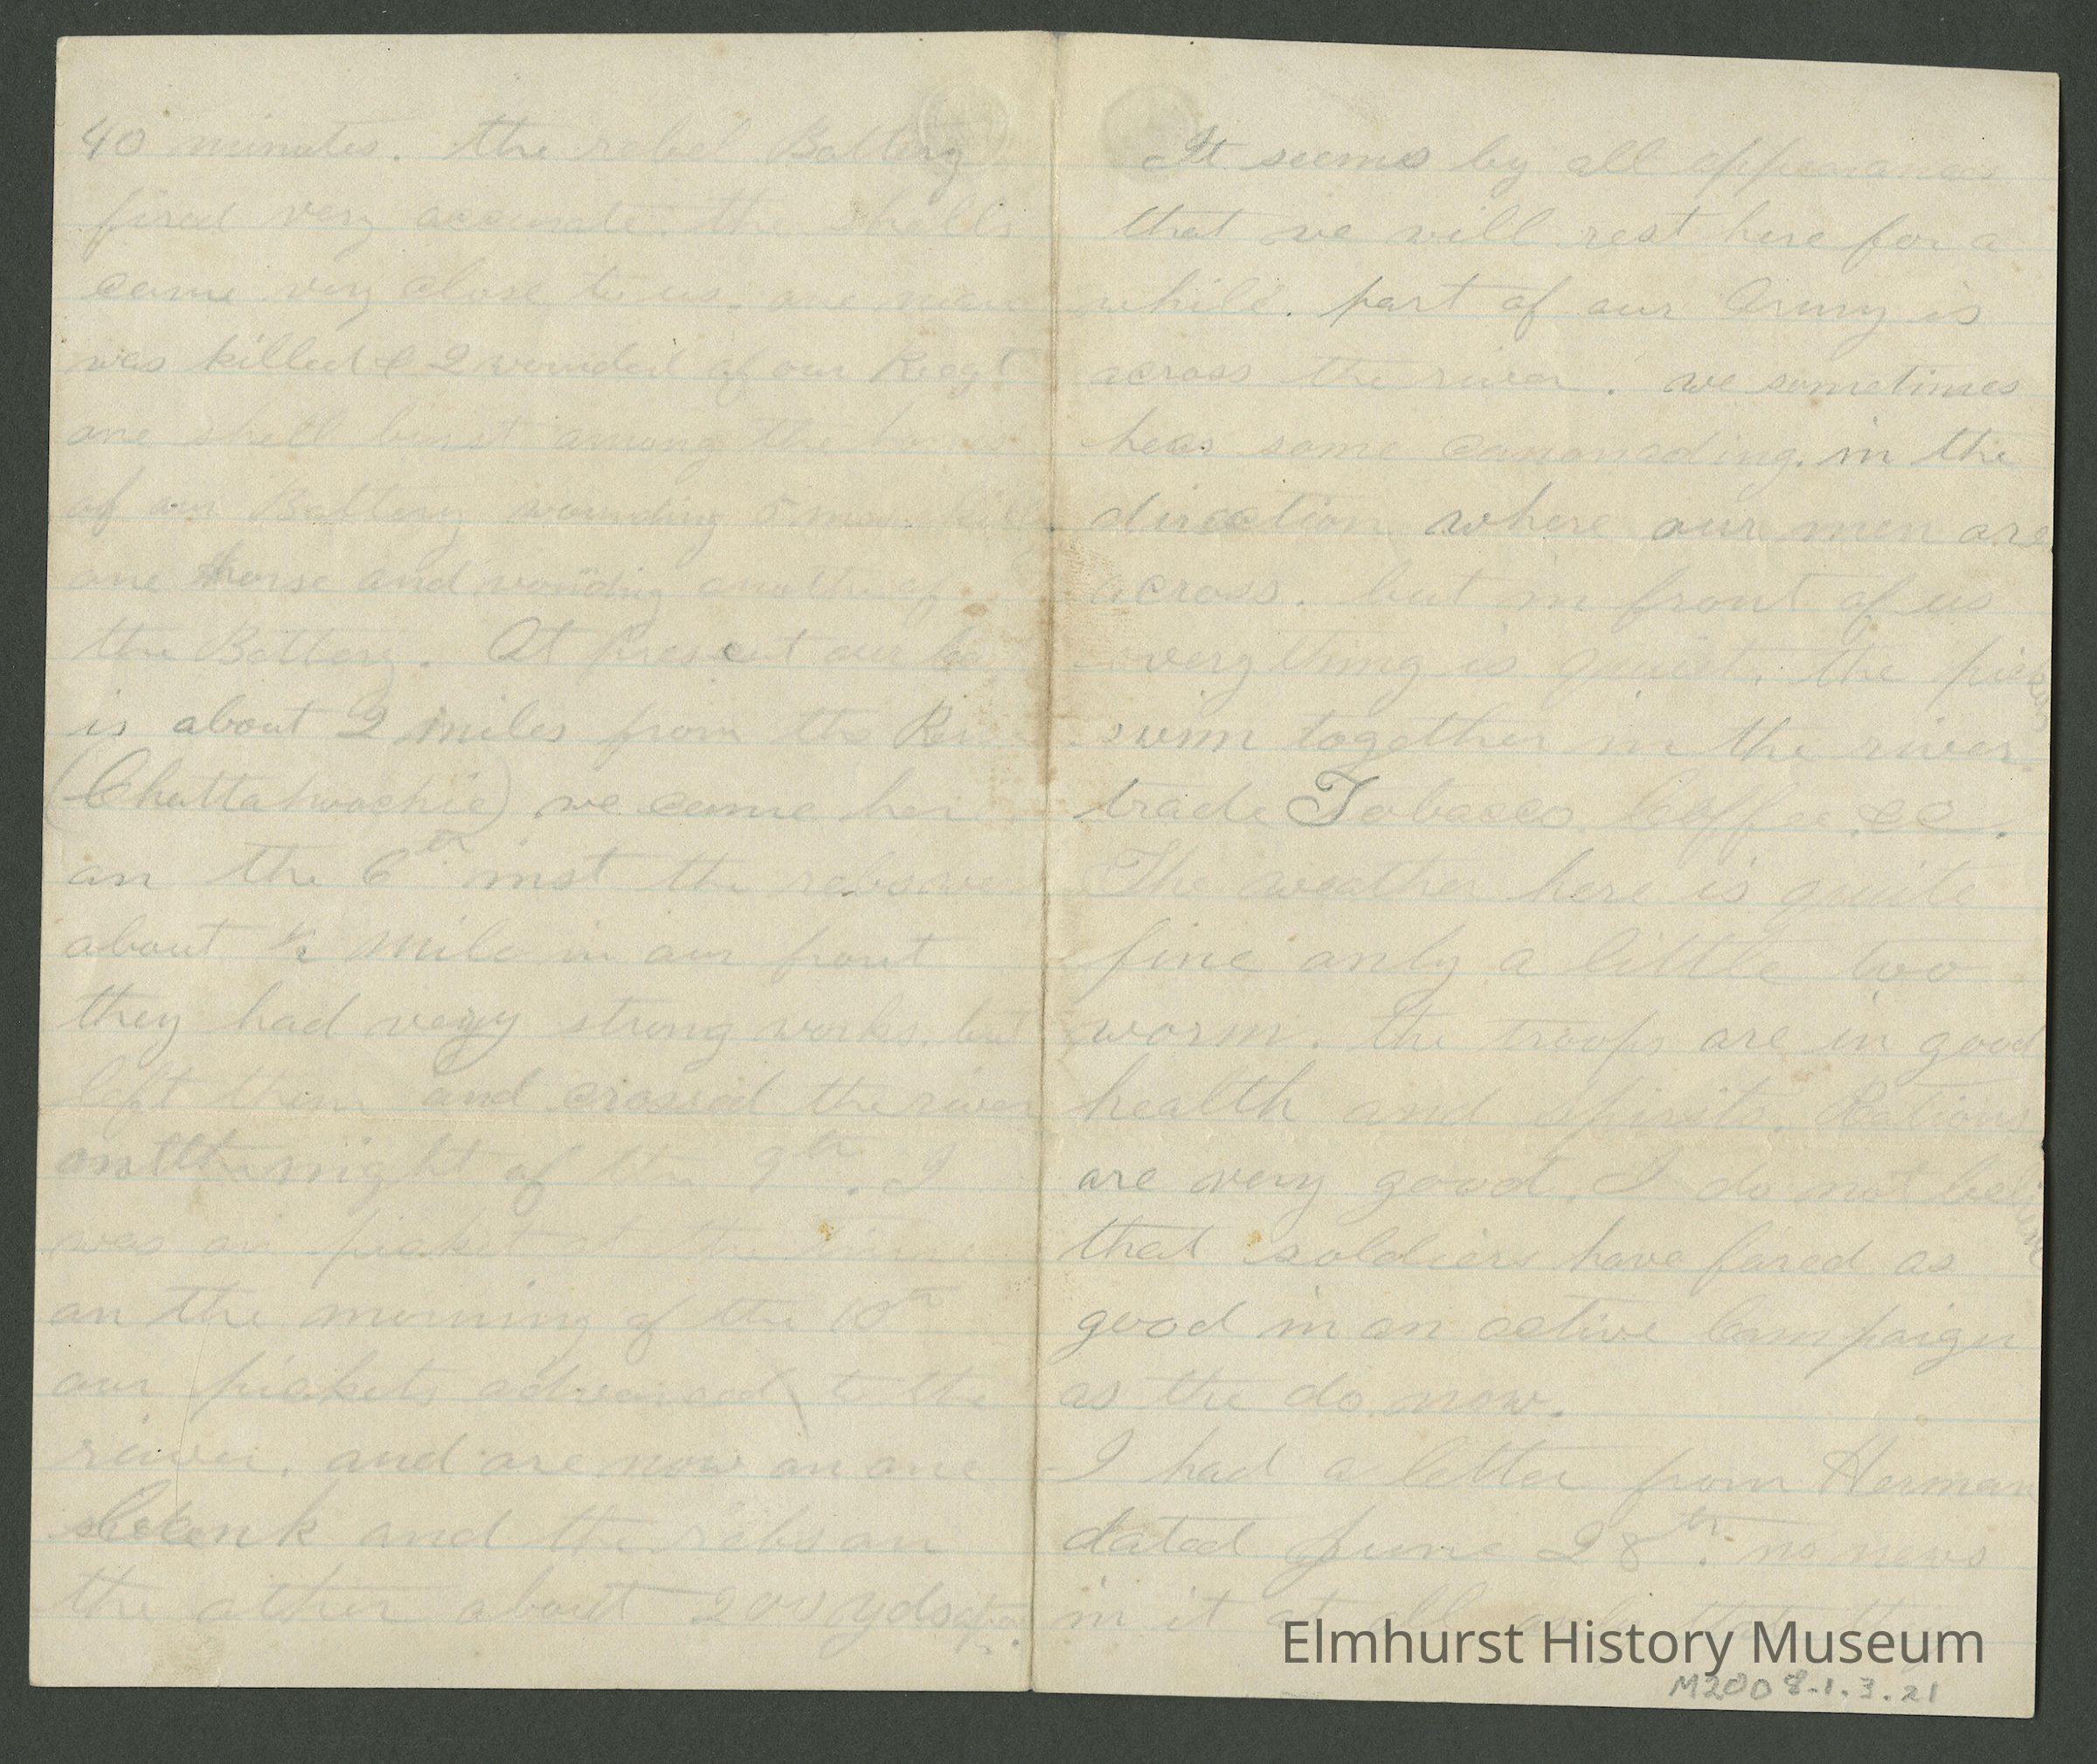 40 minutes. the rebel Battery
fired very accurate. the shells
came very close to us. one man
was killed & 2 wounded of our Regt
one shell burst among the horses
of our Battery wounding 5 men
one horse and wounding another of
the Battery. At present our
is about 2 miles from the
(Chattahoochie) we came here
on the 6th inst the rebs were
about ½ mile in our front
they had very strong works. but
left them and crossed the river
on the night of the 9th. I
was on picket at the time
on the morning of the 10th
our pickets advanced to the
river. and are now on one
bank and the rebs on
the other about 200 yds apart.
It seems by all appearances
that we will rest here for a
while. part of our Army is
across the river. we sometimes
hear some canonading. in the
direction where our men are
across. but in front of us
everything is quiet. the pickets
swim together in the river
trade Tobacco. Coffee. &c.
The weather here is quite
fine only a little too
worm. the troops are in good
health and spirits. Rations
are very good. I do not believe
that soldiers have fared as
good in an active Campaign
as the do now.
I had a letter from Herman
dated June 28th. no news
in it at all only that the
Elmhurst History Museum
M2008.1.3.21